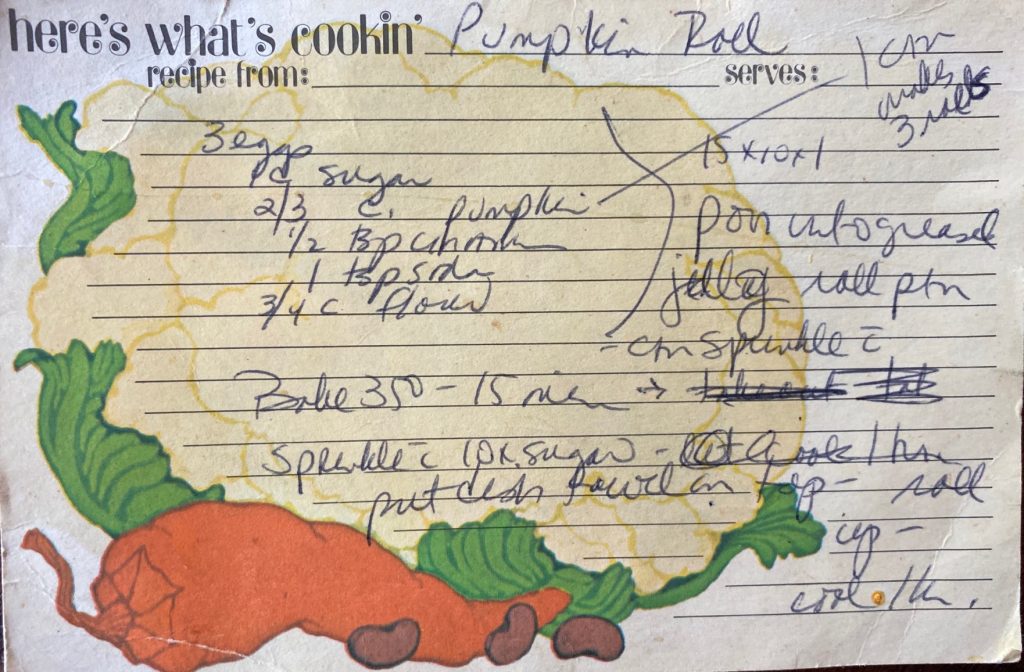 here's what's cookin' Pumpkin Roll
recipe from: serves:
1 can
makes
3 rolls
3 eggs
1 c sugar
2/3 c. pumpkin
1/2 tsp cinnamon
1 tsp soda
3/4 c flour
15x10x1
pour into greased
jelly roll pan
- can sprinkle c̄
Bake 350 - 15 min →
Sprinkle c̄ 10x sugar - cool 1 hr
put dish towel on top - roll
up -
cool 1 hr.